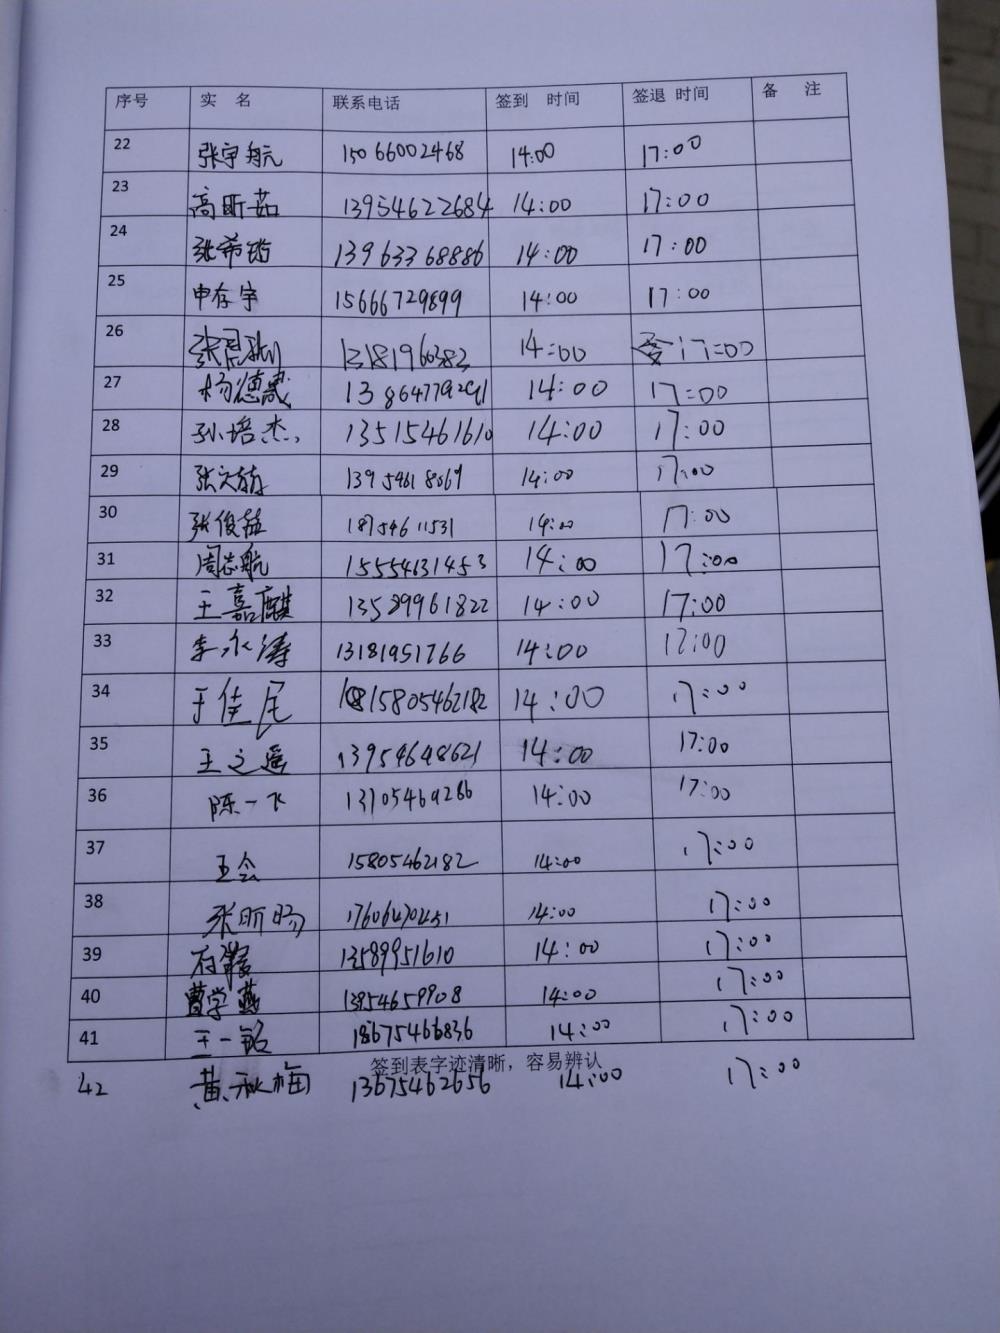 序号 实 名 联系电话 签到 时间 签退 时间 备 注
22 张宇航 15066002468 14:00 17:00
23 高昕茹 13954622684 14:00 17:00
24 张希 13963368886 14:00 17:00
25 申存宇 15666729899 14:00 17:00
26 13181960383 14:00 17:00
27 杨德晟 14:00 17:00
28 孙培杰 13515461610 14:00 17:00
29 张文 13954618069 14:00 17:00
30 张俊 18754611531 14:00 17:00
31 周志航 15554631453 14:00 17:00
32 王嘉麒 13589961822 14:00 17:00
33 李永涛 13181951766 14:00 17:00
34 于佳尼 15805462182 14:00 17:00
35 王之遥 13954648621 14:00 17:00
36 陈一飞 13705469286 14:00 17:00
37 王会 15805462182 14:00 17:00
38 张昕旸 14:00 17:00
39 13589951610 14:00 17:00
40 曹学燕 13954659908 14:00 17:00
41 王一铭 18675466836 14:00 17:00
签到表字迹清晰，容易辨认
42 黄秋梅 13675462656 14:00 17:00